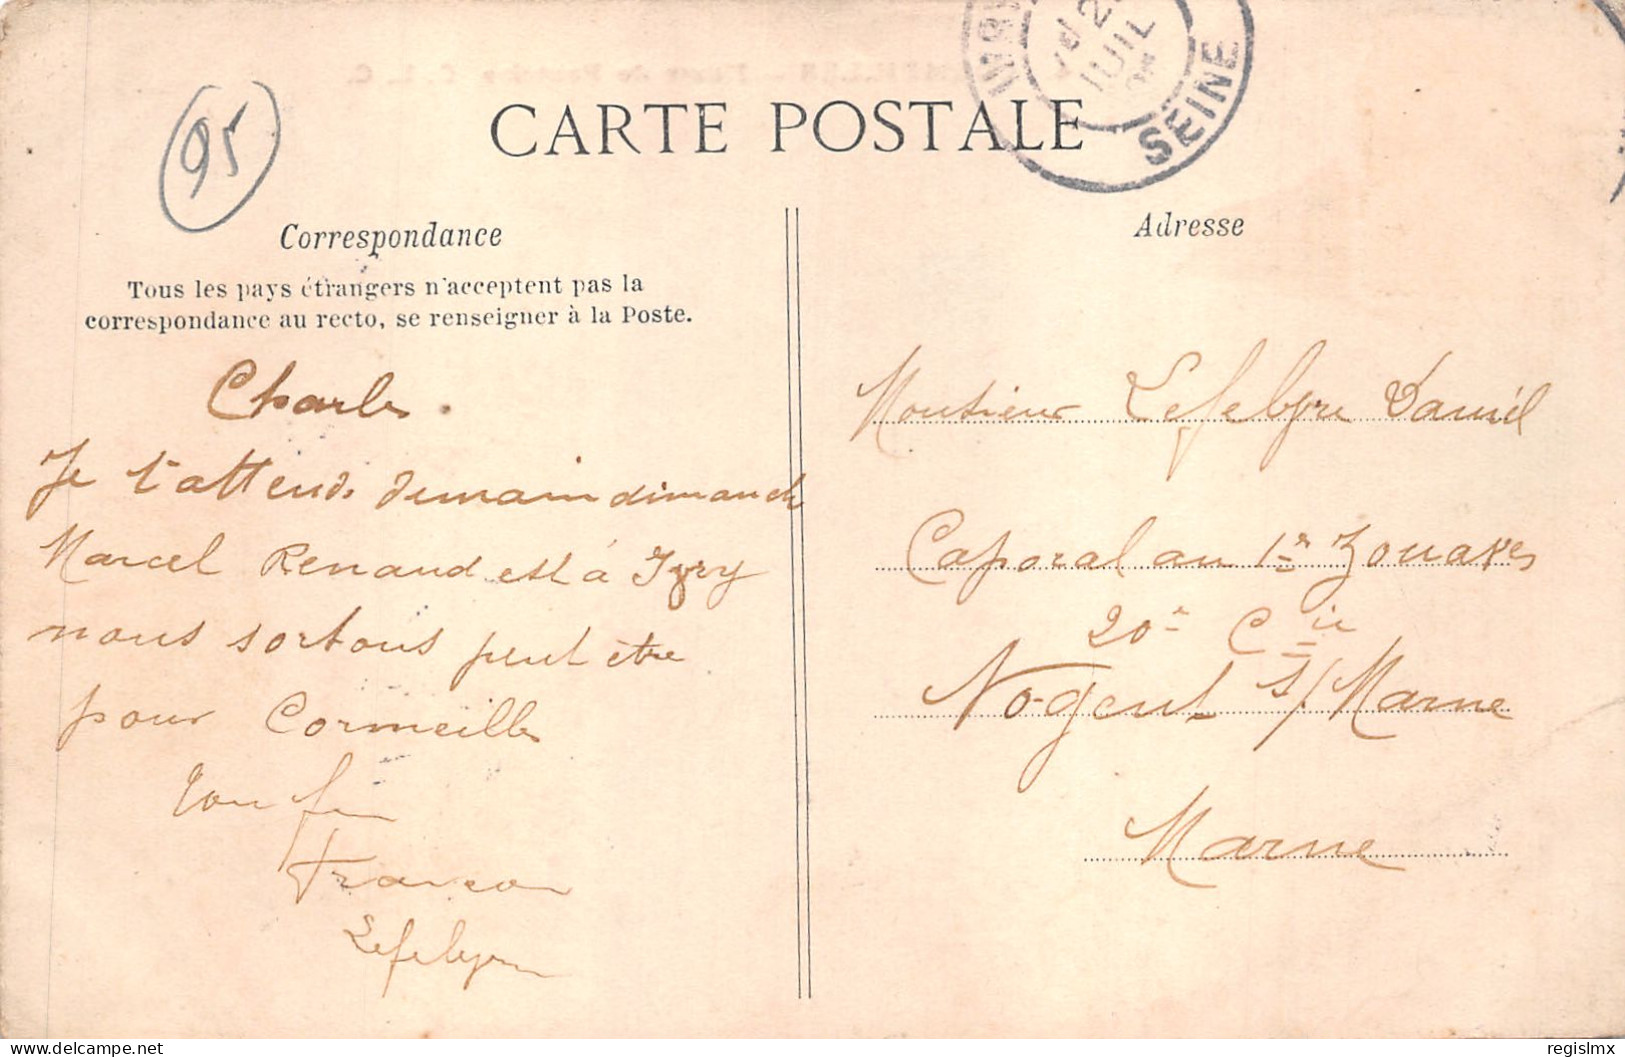 95
CARTE POSTALE
JUIL
SEINE
Correspondance
Tous les pays étrangers n'acceptent pas la
correspondance au recto, se renseigner à la Poste.
Charles.
Je t'attends demain dimanche
Marcel Renaud est à Ivry
nous sortons peut être
pour Cormeilles
Lefebvre
Adresse
Monsieur Lefebvre Daniel
Caporal au 1er Zouaves
20e Cie
Nogent s/ Marne
Marne
delcampe.net
regislmx